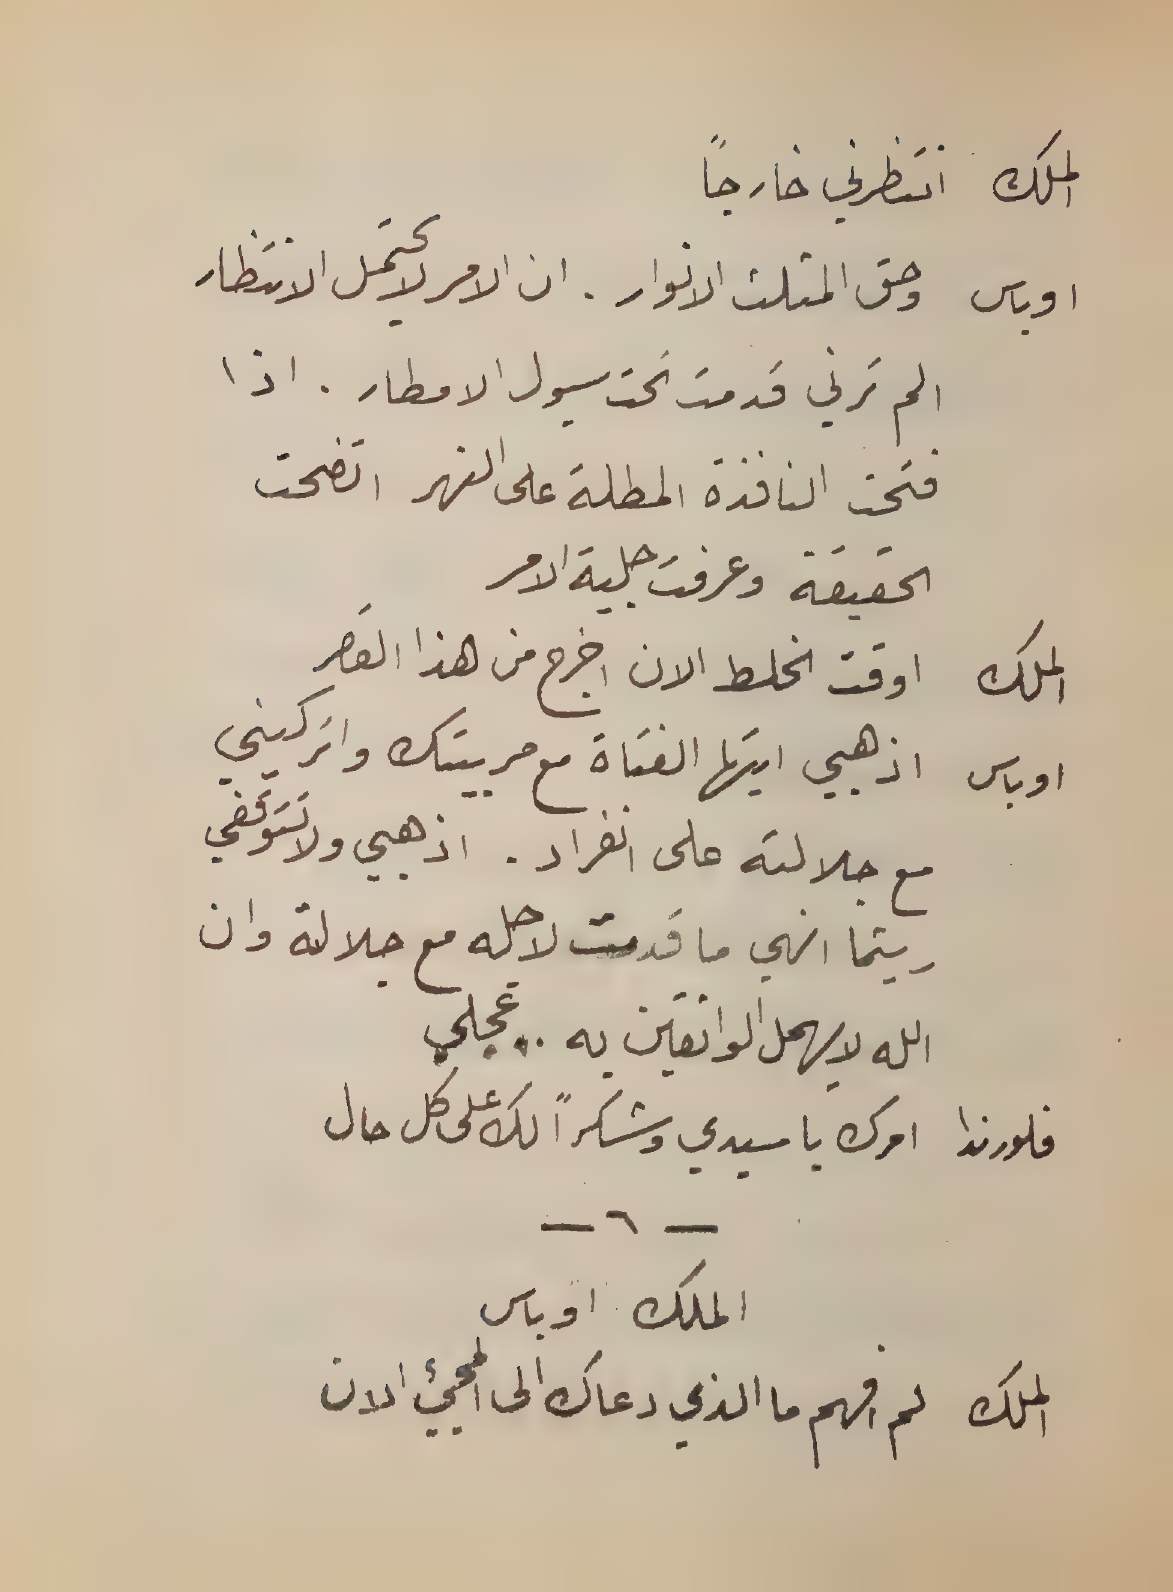 الملك انتظرني خارجاً
اوباس وحق المثلث الانوار . ان الامر لا يحتمل الانتظار
الم ترني قدمت تحت سيول الامطار . اذا
فتحت النافذة المطلة على النهر اتضحت
الحقيقة وعرفت جلية الامر
الملك اوقت الخلط الان اخرج من هذا القصر
اوباس اذهبي ايتها الفتاة مع مربيتك واتركيني
مع جلالته على انفراد . اذهبي ولا تتوقفي
ريثما انهي ما قدمت لاجله مع جلالة وان
الله لا يهمل الواثقين به .. عجلي
فلورندا امرك يا سيدي وشكراً لك على كل حال
— ٦ —
الملك اوباس
الملك لم افهم ما الذي دعاك الى المجيئ الان